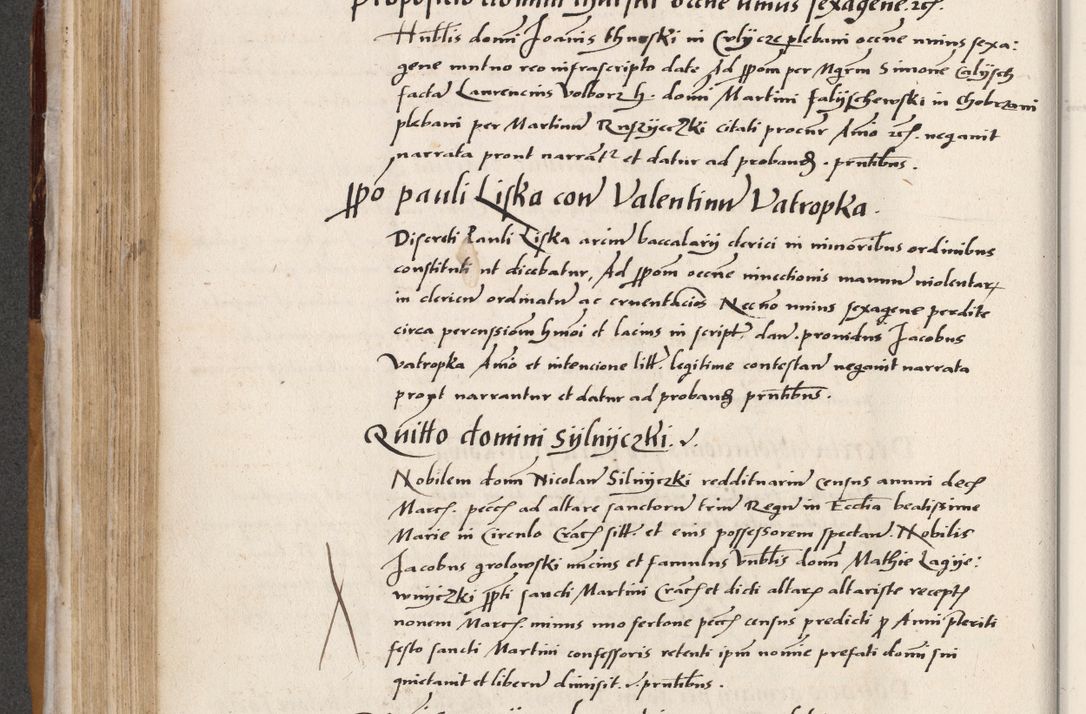 Propositio domini Thurski occne unius sexagene etc.
Hnblis domi Joannis thurski in Colycze plebani occne unius sexa:
gene mutuo reo infrascripto date Ad ppom per Mgrm Simone Calysch
facta Laurencius Volborz h. domi Martini falijschewski in Chobrzani
plebani per Martinu Ruszyeczki citati procur Amo etc. negavit
narrata prout narrant et datur ad proband. prntibus.
ppo pauli Liska con Valentinu Vatropka.
Discreti Pauli Liska arciu baccalarij clerici in minoribus ordinibus
constituti ut dicebatur, Ad ppom occne iniectionis manuu violentar
in clericu ordinatu ac cruentacios Necno unius sexagene perdite
circa percussiom hmoi et lacius in script. dan. providus Jacobus
Vatropka Amo et intencione litt. legitime contestan negavit narrata
prout narrantur et datur ad proband prntibus.
Quitto domini Sylnyczki.
Nobilem domu Nicolau Silnyczki reddituariu Census annui dece
Marcs. pecc ad altare sanctoru triu Regu in Ecclia beatissime
Marie in Circulo Crac sitt. et eius possessorem spectan. Nobilis
Jacobus grolowski nuncius et famulus Vnblis domi Mathie Lagye:
wnyczki ppti sancti Martini Crac et dicti altars altariste recept
nonem Marcs. minus uno fertone pecc census predicti p Anni pteriti
festo sancti Martini confessoris retenti ipm nomine prefati domi sui
quietavit et liberu dimisit. prntibus.